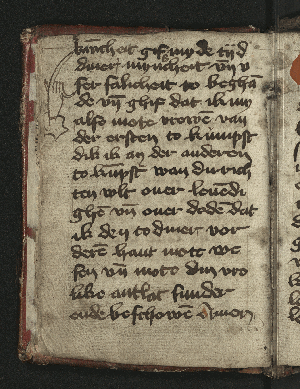 barcheit gif my de tijd
diner mynicheit vn̄ v
ser salicheit to beghā
de vn̄ ghif dat ik my
also mote vrowe van
der ersten to kumpst
dik ik an der anderen
to kūpst wan du rich
ten wlt ouer leuēdi
ghē vn̄ ouer dodē dat
ik den to diner vor
derē hant mote we
sen vn̄ mote din vro
like antlat sunder
ende beschowē Amen